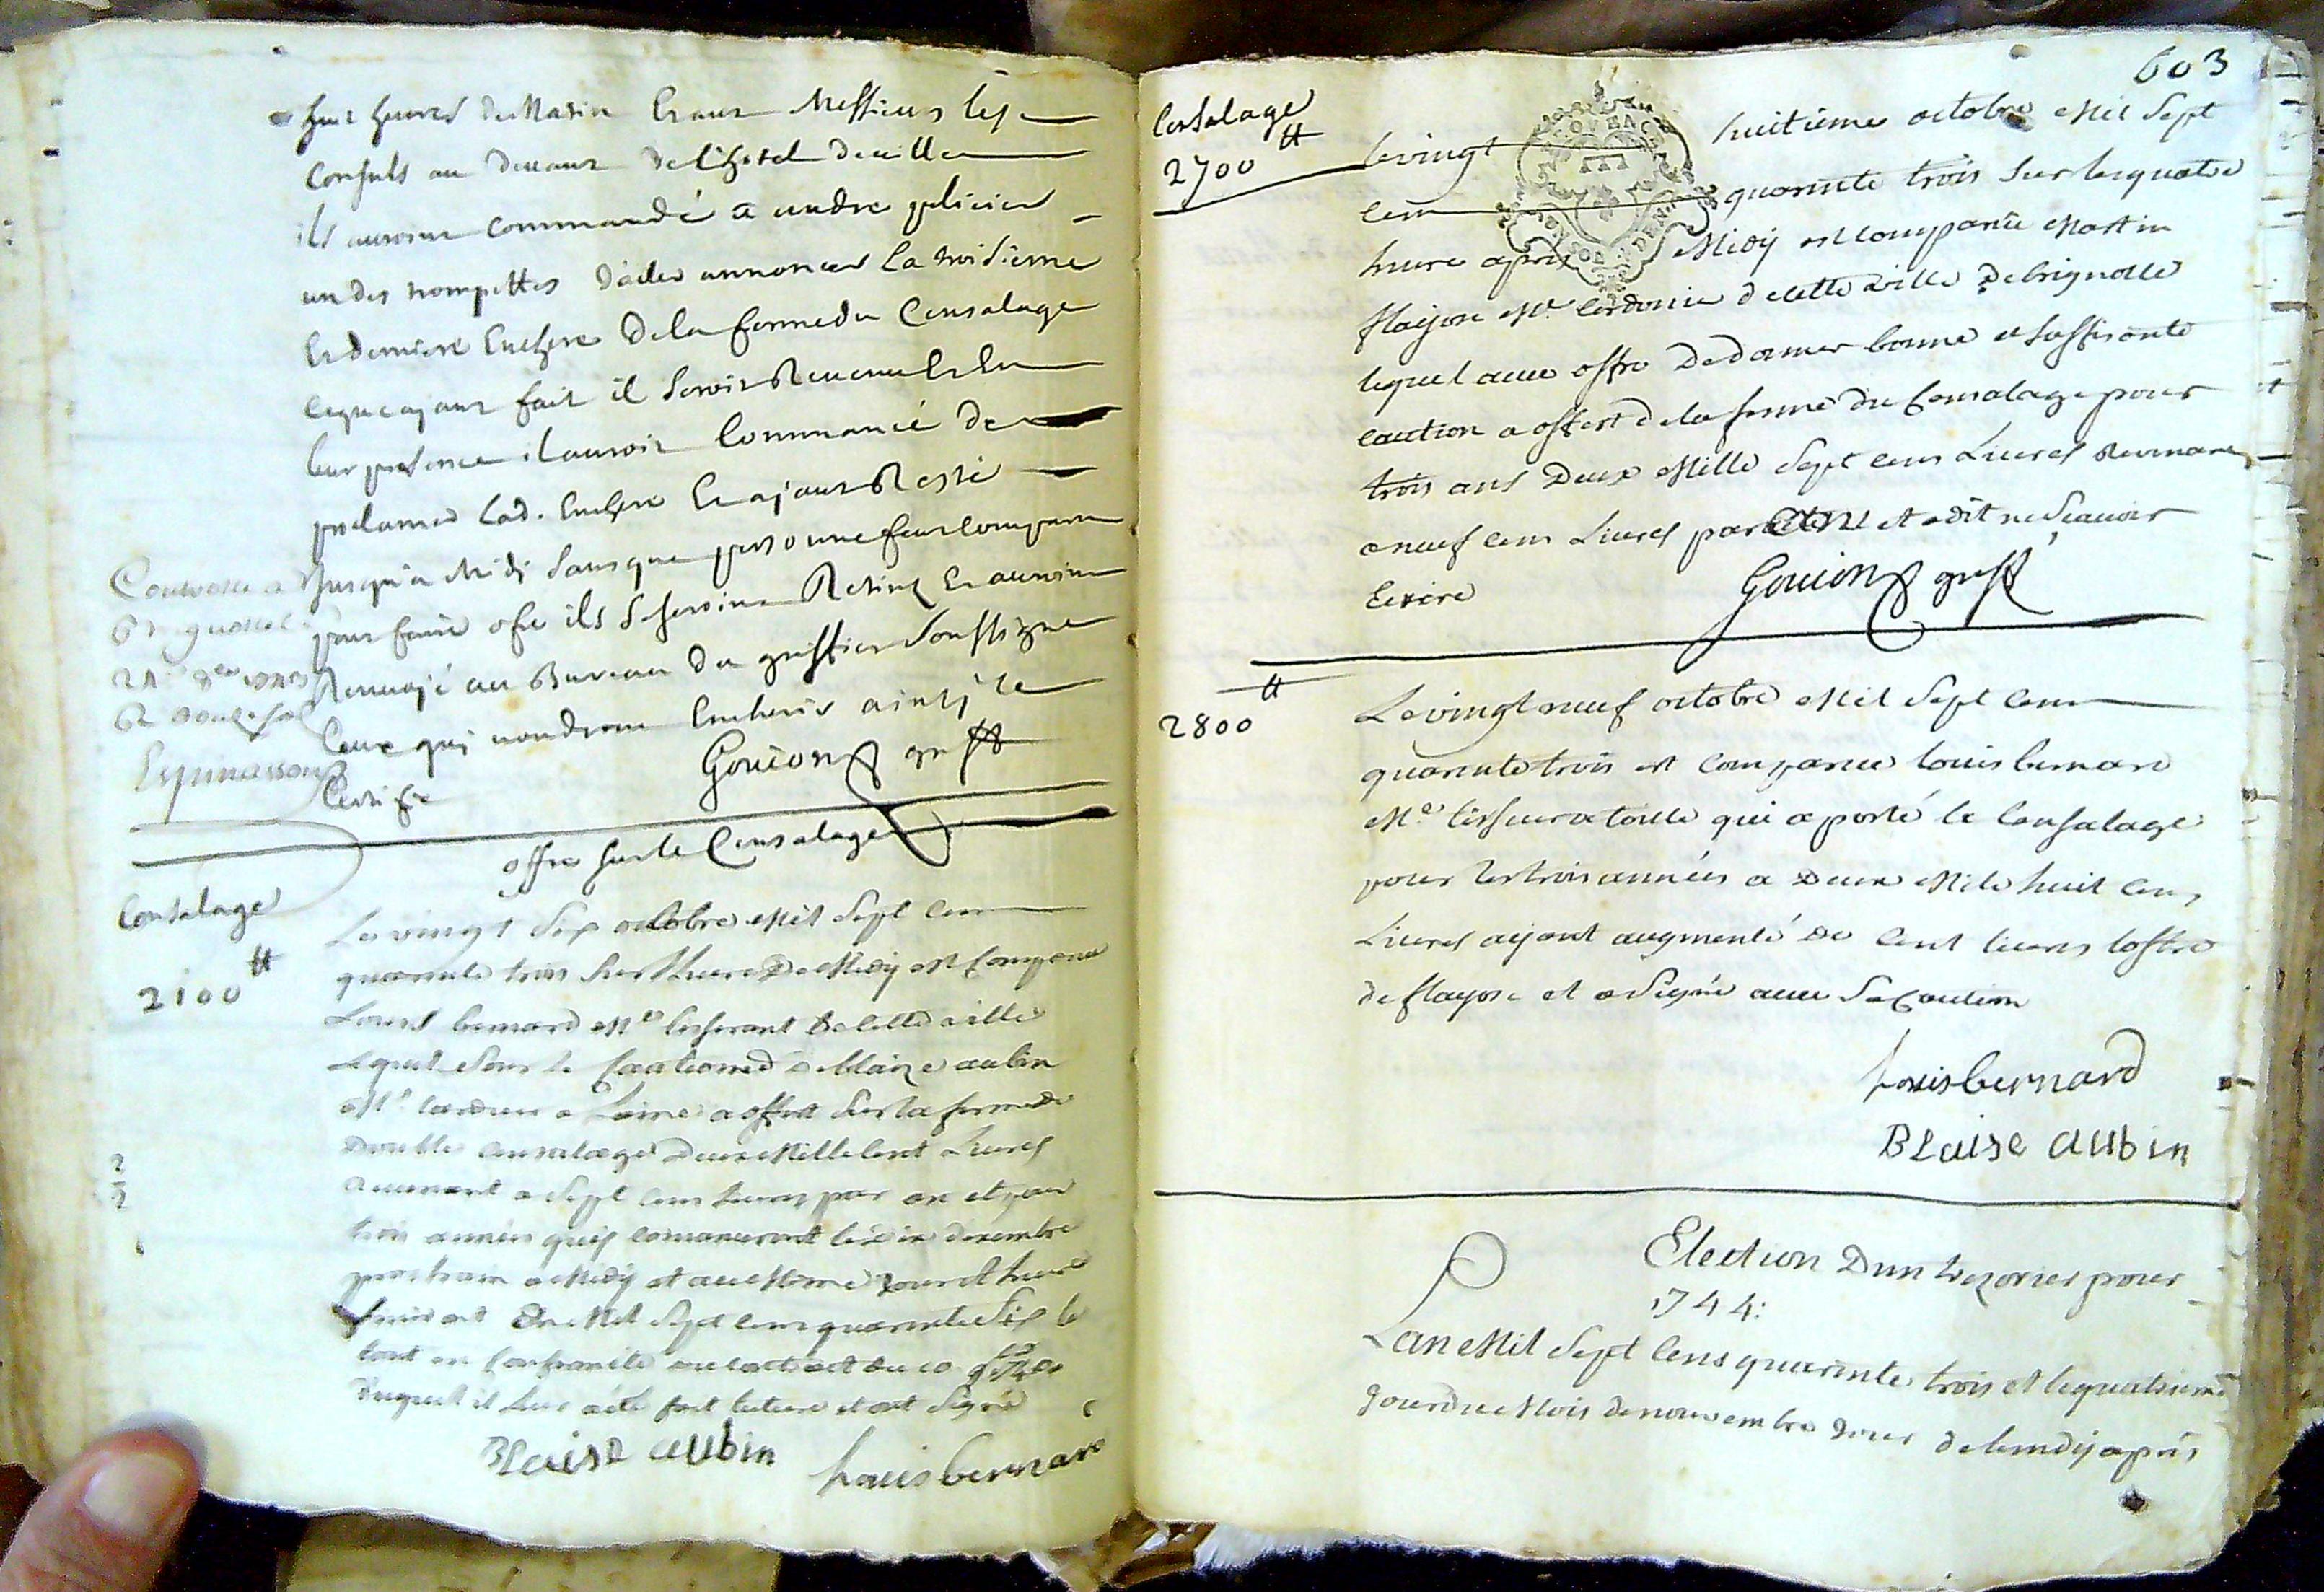 huit heures du Matin Etans Messieurs les
Consuls au deuant de l'hotel deuille
ils auroint commandé a andre pelicier
un des trompettes d'aller annoncer la troisieme
Et derniere Enchere de la ferme du Censalage
ceque ayant fait il seroit Reuenu Et En
leur presence il auroit Commancé de
proclamer lad. Enchere Et ayant Resté
jusqu'a Midi sans que personne feut comparu
pour faire ofre ils se seroint Retirés Et auroint
Renuoyé au Bureau du greffier soussigné
Ceux qui voudront Encherir ainsy le
Certifie
Gouion greff
Controllé a
Brignolle
21 8bre 1743
R douze sols
Espinassou
offre sur le Censalage
Censalage
2100 ₶
Le vingt six octobre Mil sept cens
quarante trois sur l'heure de Midy est Comparu
Louis bernard Me tisserant de cette ville
Lequel sous le Cautionned de blaize aubin
Me cardeur a Laine a offert sur la ferme du
double censalage deux Mille cent Livres
Reuenant a sept cens Livres par an et pour
trois années quy comanceront le dix decembre
prochain a Midy et au Meme jour et heure
finiront En Mil sept cens quarante six le
tout en Conformité au
duquel il leur a été fait lecture et ont signé
BLaise aubin Louis bernard
603
Censalage
2700 ₶
Le vingt huitieme octobre Mil sept
cens quarante trois sur les quatre
heure apres Midy est comparue Martin
flayosc Me Cordonnie de cette ville de brignolle
lequel auec offre de donner bonne et suffisante
caution a offert de la ferme du Censalage pour
trois ans deux Mille sept cens Livres Reuenant
a neuf cens Livres par et a dit ne scauoir
Ecrire
Gouion greff
2800 ₶
Le vingt neuf octobre Mil sept cens
quarante trois est comparu louis bernard
Me tisseur a toille qui a porté le Censalage
pour les trois années a deux Mile huit cens
Livres ayant augmenté de cent livres l'offre
de flayosc et a signé auec sa Caution
Louis bernard
BLaise aubin
Election d'un trezorier pour
1744:
Lan Mil sept Cens quarante trois et le quatrieme
jour du Mois de nouembre jour de lundy apres